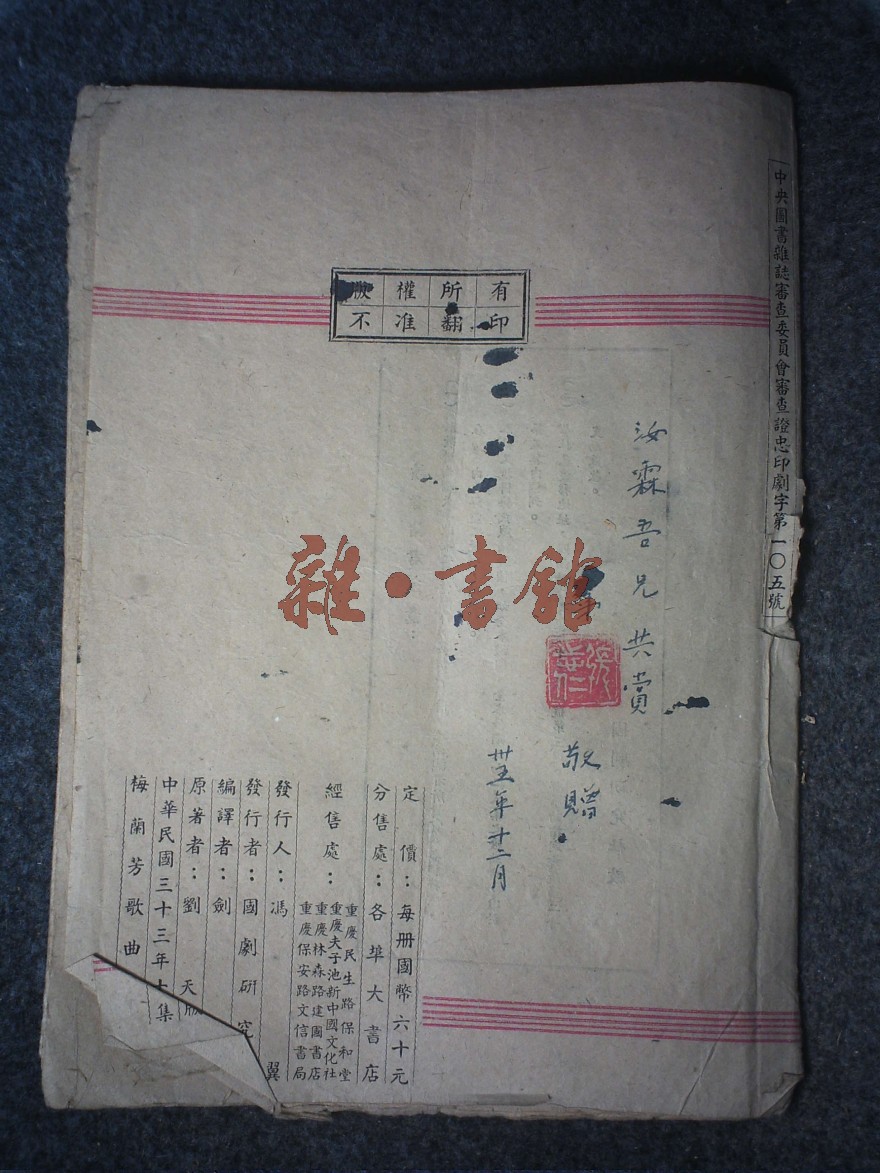 中央圖書雜誌審查委員會審查證忠印劇字第一〇五號
版權所有
不准翻印
汝霖吾兄共賞
弟
敬贈
卅五年十二月
定價：每册國幣六十元
分售處：各埠大書店
經售處：
重慶民生路保和堂
重慶夫子池新中國文化社
重慶林森路建國書店
重慶保安路文信書局
發行人：馮翼
發行者：國劇研究
編譯者：劍
原著者：劉天
中華民國三十三年
梅蘭芳歌曲
雜·書館